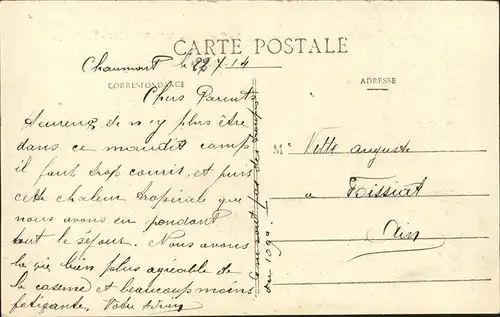 CARTE POSTALE
Chaumont le 22.7.14
CORRESPONDANCE
ADRESSE
Chers Parents
de n'y plus être
dans ce maudit camp
il faut trop courir, et puis
cette chaleur tropicale que
nous avons eu pendant
tout le séjour. Nous avons
la vie bien plus agréable de
la caserne et beaucoup moins
fatigante, Votre
du 109e.
M
Vette Auguste
à Foissiat
Ain